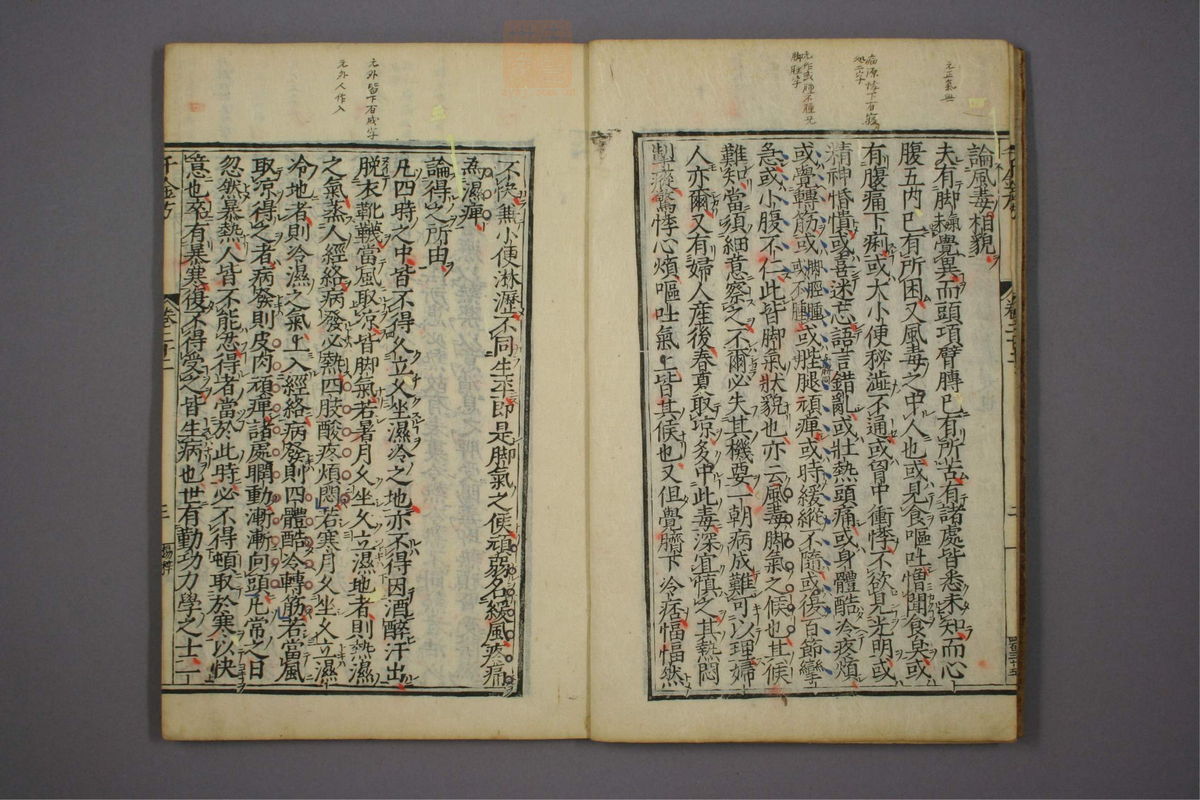 論風毒相貌
夫有脚氣未覺異而頭項臂膊已有所苦有諸處皆悉未知而心
腹五內已有所困又風毒之中人也或見食嘔吐憎聞食臭或
有腹痛下痢或大小便秘澁不通或胷中衝悸不欲見光明或
精神惛憒或喜迷忘語言錯亂或壯熱頭痛或身體酷冷疼煩
或覺轉筋或脚脛腫或不腫或䏶腿頑痺或時緩縱不隨或復百節攣
急或小腹不仁此皆脚氣狀貌也亦云風毒脚氣之候也其候
難知當須細意察之不爾必失其機要一朝病成難可以理婦
人亦爾又有婦人産後春夏取凉多中此毒深宜慎之其熱悶
掣瘲驚悸心煩嘔吐氣上皆其候也又但覺臍下冷痞愊愊然
不快兼小便淋瀝不同生平即是脚氣之候頑弱名緩風疼痛
為濕痺
論得之所由
凡四時之中皆不得久立久坐濕冷之地亦不得因酒醉汗出
脱衣靴韈當風取凉皆脚氣若暑月久坐久立濕地者則熱濕
之氣蒸人經絡病發必熱四肢酸疼煩悶若寒月久坐久立濕
冷地者則冷濕之氣上入經絡病發則四體酷冷轉筋若當風
取凉得之者病發則皮肉頑痺諸處瞤動漸漸向頭凡常之日
忽然暴熱人皆不能忍得者當於此時必不得頓取於寒以快
意也卒有暴寒復不得受之皆生病也世有勤功力學之士一